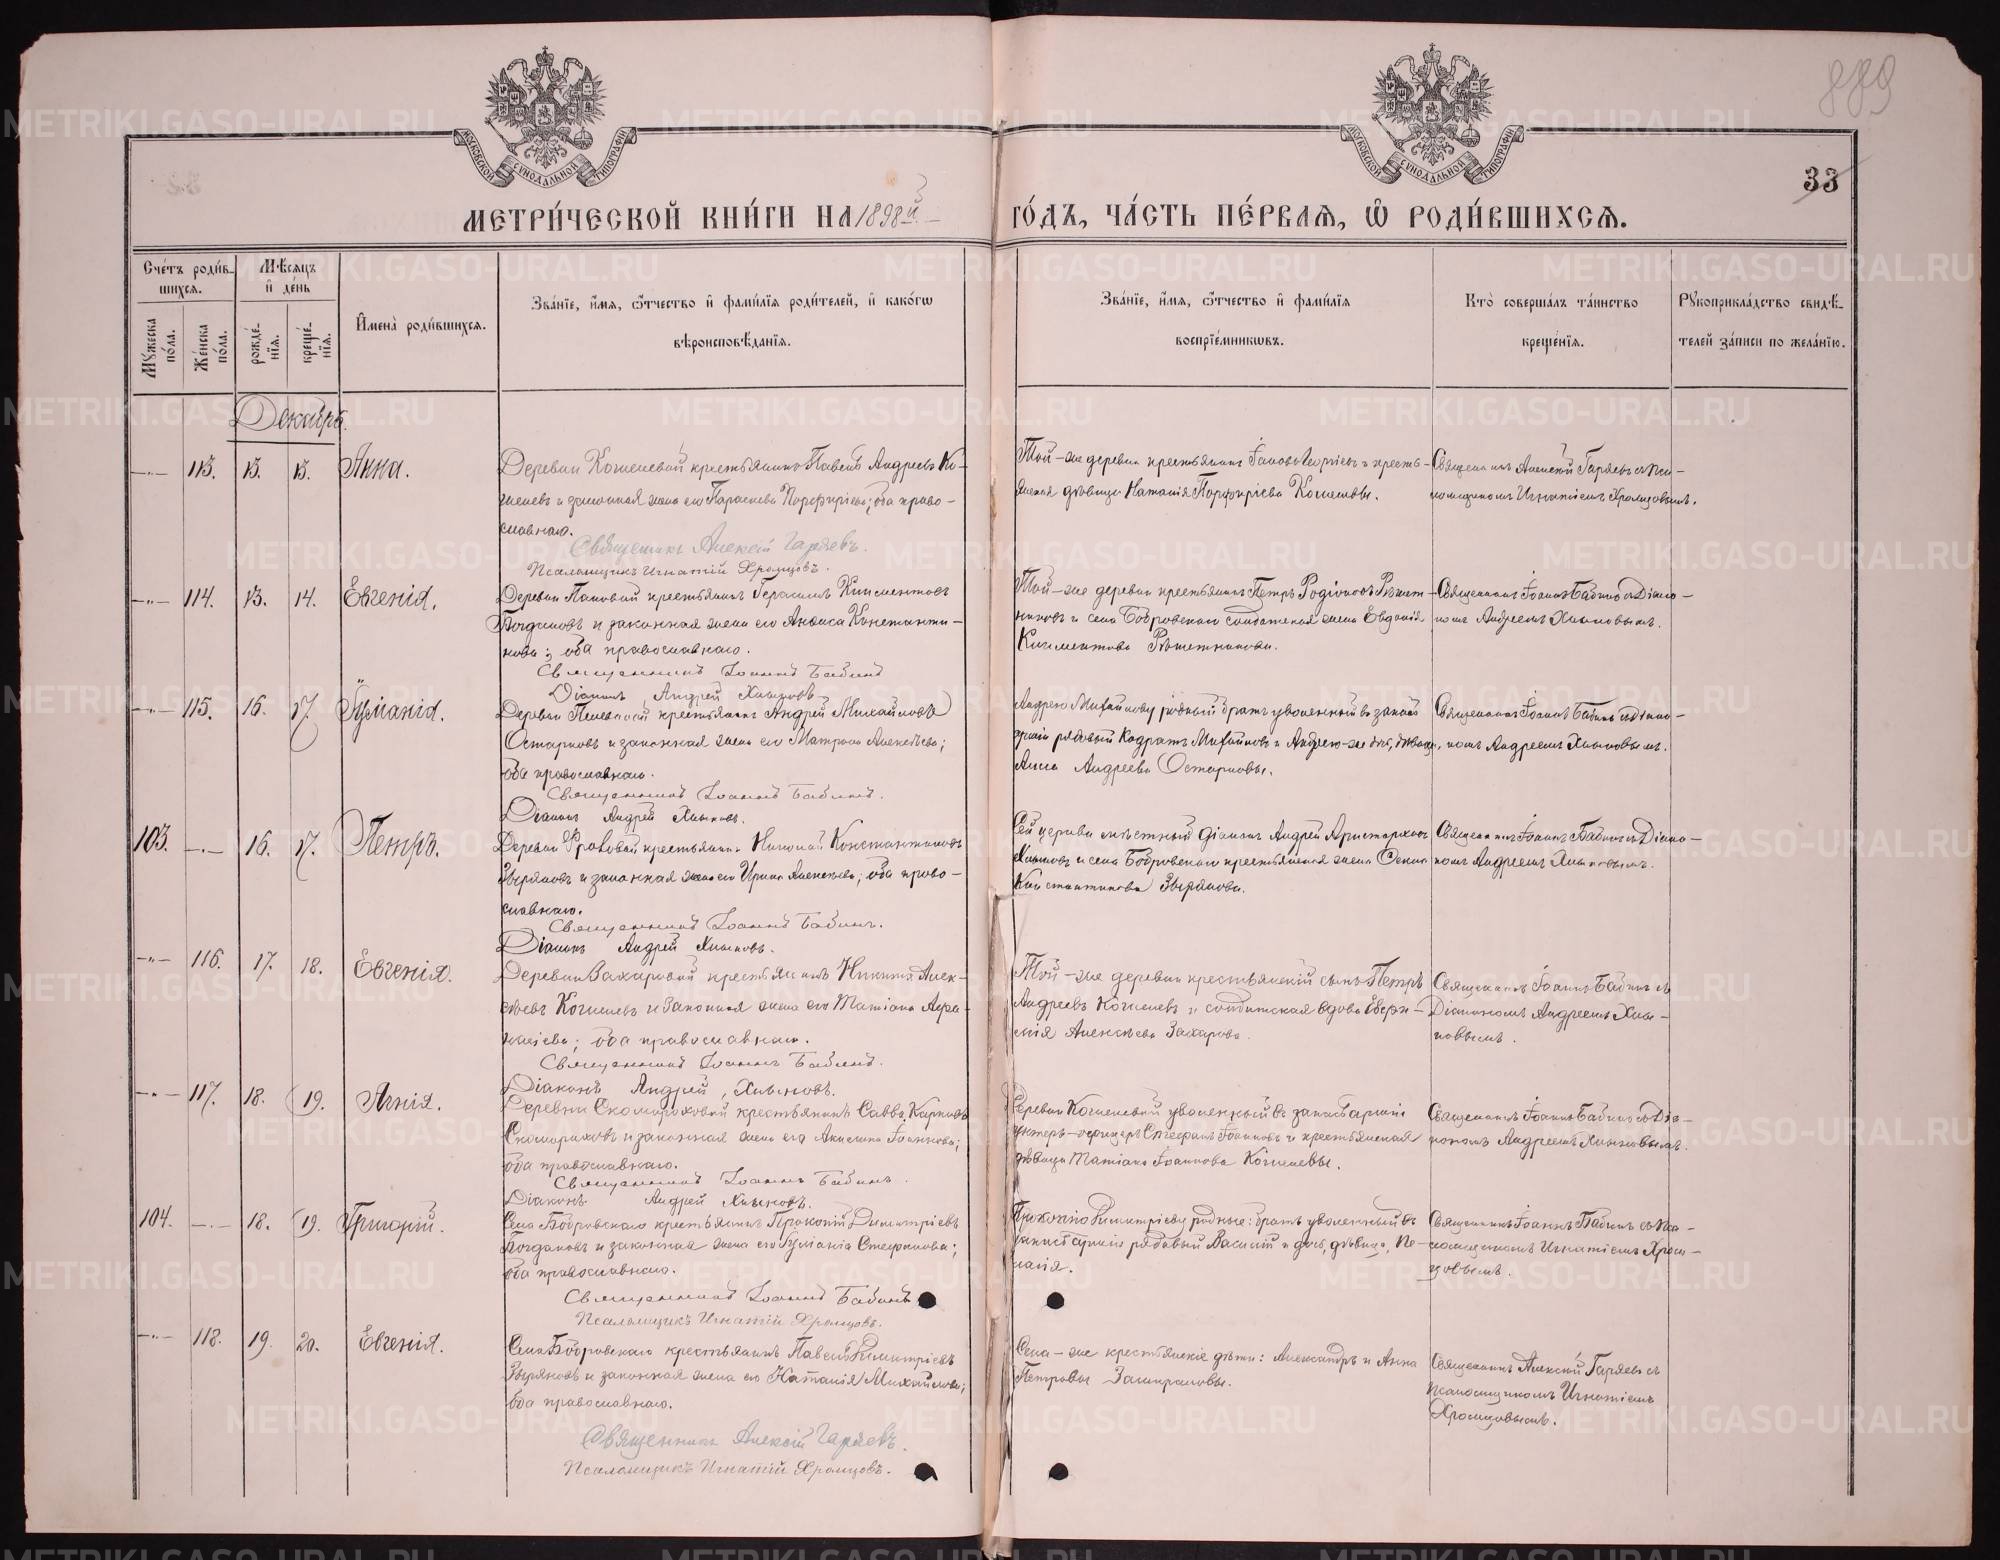 889
33
МОСКОВСКОЙ СѴНОДАЛЬНОЙ ТИПОГРАФІИ
МОСКОВСКОЙ СѴНОДАЛЬНОЙ ТИПОГРАФІИ
МЕТРИ́ЧЕСКОЙ КНИ́ГИ НА 1898й ГО́ДЪ, ЧА́СТЬ ПЕ́РВАЯ, Ѡ҆ РОДИ́ВШИХСЯ.
Сче́тъ роди́в-
шихся.
Мꙋ́жеска по́ла.
Же́нска по́ла.
Мѣ́сяцъ
и҆ де́нь
рожде́нїя.
креще́нїя.
И҆мена̀ роди́вшихся.
Зва́нїе, и҆́мя, ѻ҆́тчество и҆ фами́лїя роди́телей, и҆ како́гѡ
вѣроисповѣ́данїя.
Зва́нїе, и҆́мя, ѻ҆́тчество и҆ фами́лїя
воспрїе́мникѡвъ.
Кто̀ соверша́лъ та́инство
креще́нїя.
Рꙋкоприкла́дство свидѣ́-
телей за́писи по жела́нїю.
Декабрь.
113. 13. 13. Анна.
Деревни Кошелевой крестьянинъ Павелъ Андреевъ Ко-
шелевъ и законная жена его Параскева Порфирiева; оба право-
славнаго.
Священникъ Алексiй Гаряевъ.
Псаломщикъ Игнатiй Хромцовъ.
Той-же деревни крестьянинъ Iаковъ Георгiевъ и кресть-
янская дѣвица Наталiя Порфирiева Кошелевы.
Священникъ Алексiй Гаряевъ съ пса-
ломщикомъ Игнатiемъ Хромцовымъ.
114. 13. 14. Евгенiя.
Деревни Паковой крестьянинъ Герасимъ Климентовъ
Богдановъ и законная жена его Анѳиса Константи-
нова; оба православнаго.
Священникъ Iоаннъ Бабинъ
Дiаконъ Андрей Хлыновъ
Той-же деревни крестьянинъ Петръ Родiоновъ Рѣшет-
никовъ и села Бобровскаго солдатская жена Евдокiя
Климентова Рѣшетникова.
Священникъ Iоаннъ Бабинъ съ Дiако-
номъ Андреемъ Хлыновымъ.
115. 16. 17. Iулiанiя.
Андрей Михайловъ
и законная жена его Матрона Алексѣева;
оба православнаго.
Священникъ Iоаннъ Бабинъ.
Дiаконъ Андрей Хлыновъ.
Андрею Михайлову родный братъ уволенный въ запас
армiи рядовый Кодратъ Михайловъ и Андрею-же дочь, дѣвица,
Анна Андреева
Священникъ Iоаннъ Бабинъ съ дiако-
номъ Андреемъ Хлыновымъ.
103. 16. 17. Петръ.
Деревни Фроловой крестьянинъ Николай Константиновъ
Зыряновъ и законная жена его Ирина Алексѣева; оба право-
славнаго.
Священникъ Iоаннъ Бабинъ.
Дiаконъ Андрей Хлыновъ.
Сей церкви мѣстный дiаконъ Андрей Аристарховъ
Хлыновъ и села Бобровскаго крестьянская жена Ѳекла
Константинова Зырянова.
Священникъ Iоаннъ Бабинъ съ Дiако-
номъ Андреемъ Хлыновымъ.
116. 17. 18. Евгенiя.
Деревни Захаровой крестьянинъ Никита Алек-
сѣевъ Кошелевъ и законная жена его Татiана Аѳана-
насiева; оба православнаго.
Священникъ Iоаннъ Бабинъ.
Дiаконъ Андрей Хлыновъ.
Той-же деревни крестьянскiй сынъ Петръ
Андреевъ Кошелевъ и солдатская вдова Евфи-
мiя Алексѣева Захарова.
Священникъ Iоаннъ Бабинъ съ
Дiакономъ Андреемъ Хлы-
новымъ.
117. 18. 19. Агнiя.
Деревни Скомороховой крестьянинъ Савва Карповъ
Скомороховъ и законная жена его Акилина Iоаннова;
оба православнаго.
Священникъ Iоаннъ Бабинъ.
Дiаконъ Андрей Хлыновъ.
Деревни Кошелевой уволенный въ запас армiи
унтеръ-офицеръ Стефанъ Iоанновъ и крестьянская
дѣвица Татiана Iоаннова Кошелевы.
Священникъ Iоаннъ Бабинъ съ Дiа-
кономъ Андреемъ Хлыновымъ.
104. 18. 19. Григорiй.
Села Бобровскаго крестьянинъ Прокопiй Димитрiевъ
Богдановъ и законная жена его Iулiанiя Стефанова;
оба православнаго.
Священникъ Iоаннъ Бабинъ
Псаломщикъ Игнатiй Хромцовъ.
Прокопiю Димитрiеву родные: братъ уволенный въ
запас армiи рядовый Василiй и дочь, дѣвица, Пе-
лагiя.
Священникъ Iоаннъ Бабинъ съ пса-
ломщикомъ Игнатiемъ Хром-
цовымъ.
118. 19. 20. Евгенiя.
Села Бобровскаго крестьянинъ Павелъ Димитрiевъ
Зыряновъ и законная жена его Наталiя Михайлова;
оба православнаго.
Священникъ Алексiй Гаряевъ.
Псаломщикъ Игнатiй Хромцовъ.
Села-же крестьянскiе дѣти: Александръ и Анна
Петровы
Священникъ Алексiй Гаряевъ съ
псаломщикомъ Игнатiемъ
Хромцовымъ.
METRIKI.GASO-URAL.RU